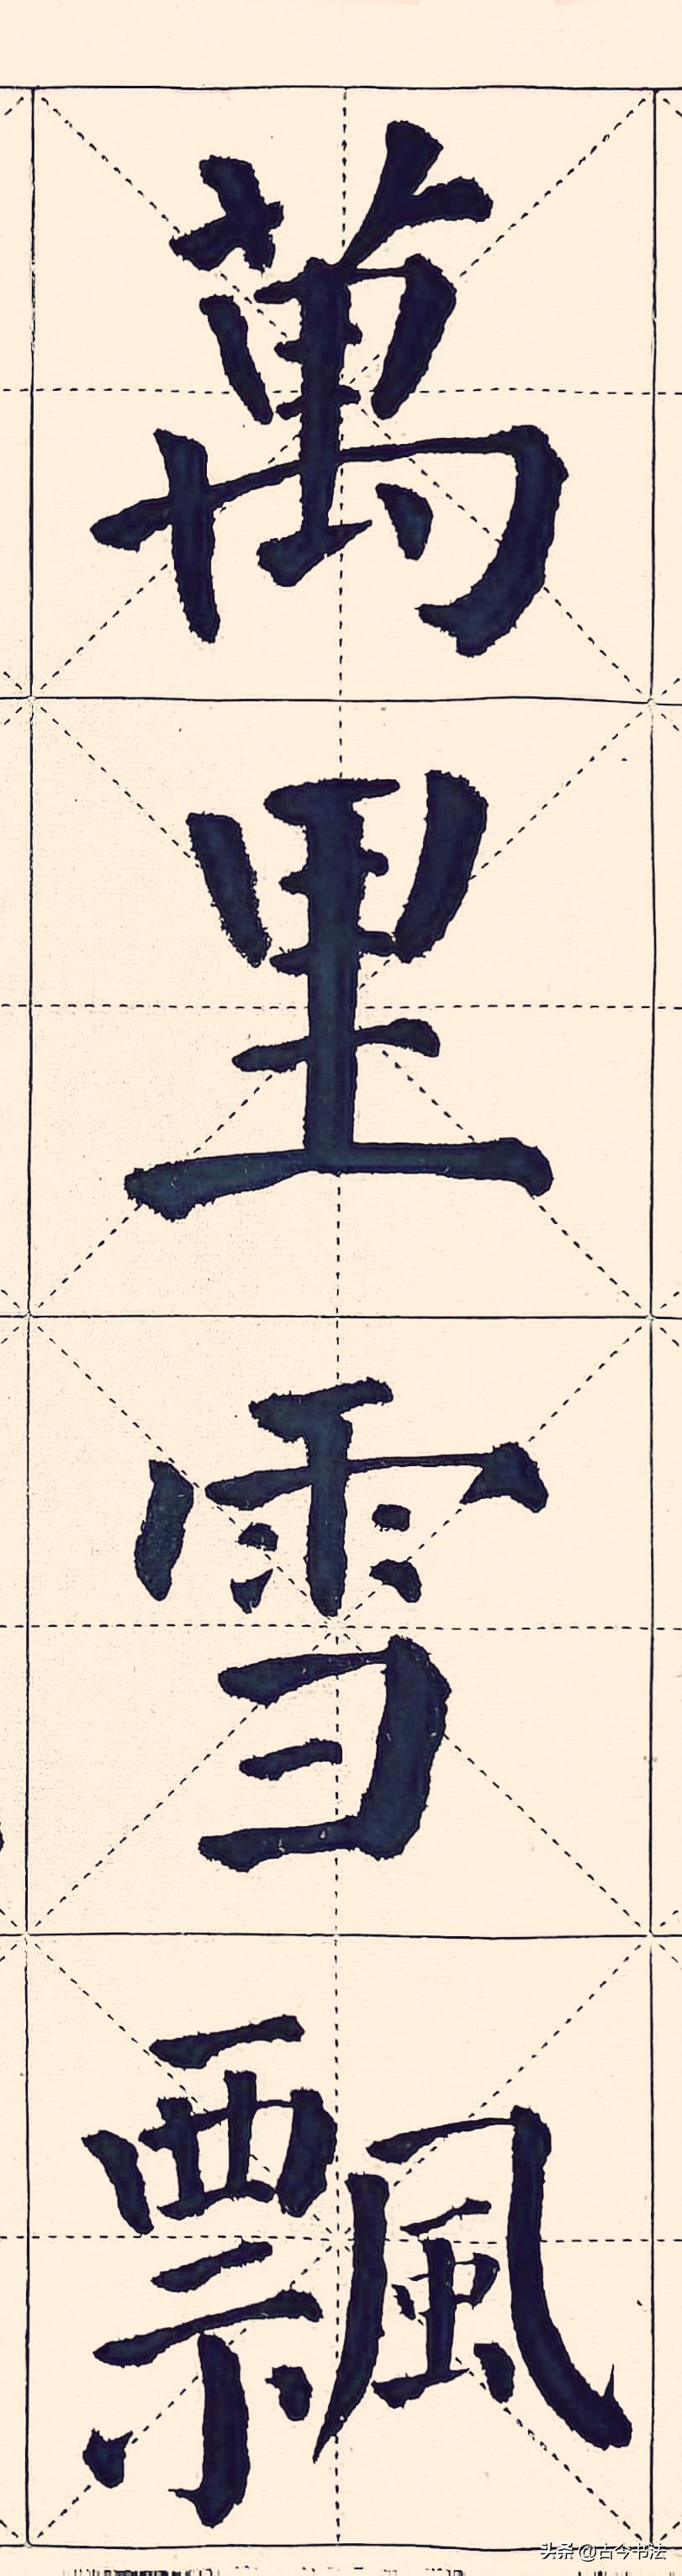 萬里雪飄
头条 @古今书法